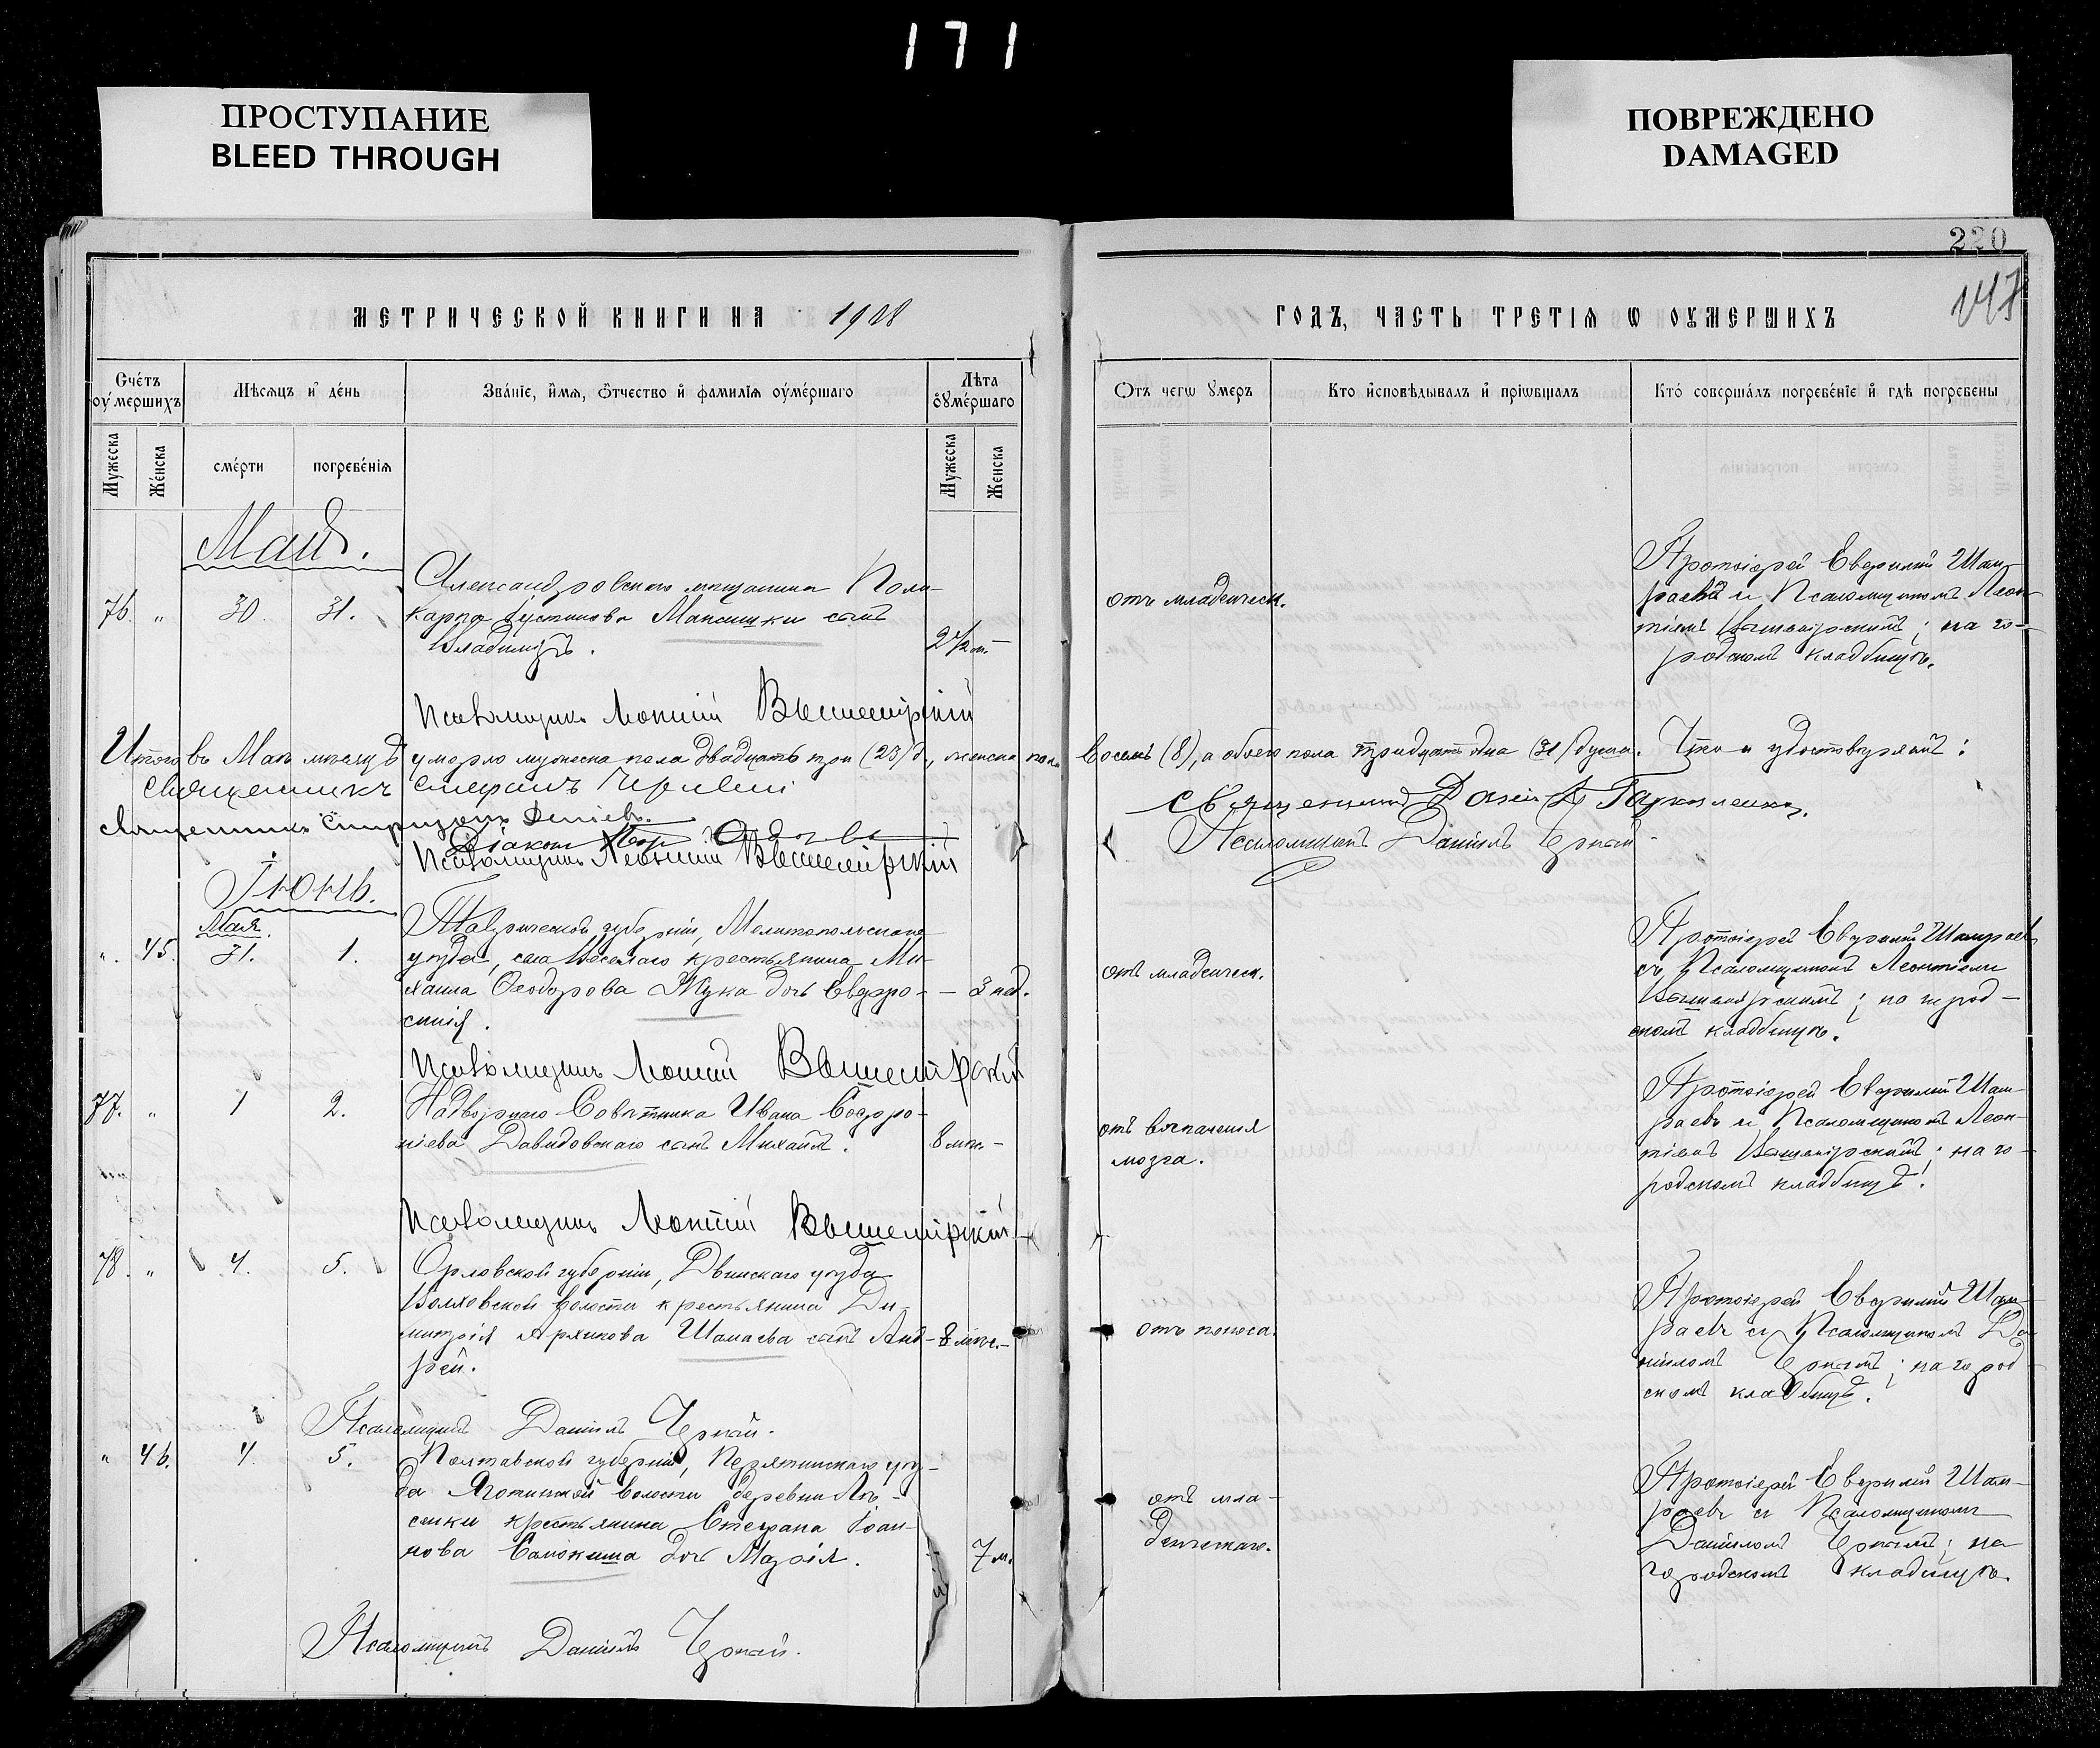 171
ПРОСТУПАНИЕ
BLEED THROUGH
ПОВРЕЖДЕНО
DAMAGED
220
147
МЕТРИЧЕСКОЙ КНИГИ НА 1908
ГОДЪ, ЧАСТЬ ТРЕТІЯ Ѡ ОУМЕРШИХЪ
Счетъ оумершихъ
Мѣсяцъ и день
Званіе, имя, ѿчество и фамилія оумершаго
Лѣта оумершаго
Отъ чегѡ умеръ
Кто исповѣдывалъ и пріѡбщалъ
Кто совершалъ погребеніе и гдѣ погребены
Мужеска
Женска
смерти
погребенія
Мужеска
Женска
Май.
76. " 30. 31.
Александровскаго мѣщанина Поли-
карпа Іустинова Максишки сынъ
Владиміръ.
2 1/2 м. -
отъ младенческ.
Протоіерей Евѳимій Шам-
раевъ и Псаломщикомъ Леон-
тіемъ Вышемірскимъ; на го-
родскомъ кладбищѣ.
Псаломщикъ Леонтій Вышемірскій
Итого въ Маѣ мѣсяцѣ умерло мужеска пола двадцать три (23) д., женска пола восемь (8), а обоего пола тридцать одна (31) душа. Что и удостовѣряютъ:
Священникъ Стефанъ
Священникъ Даніилъ Гармленко.
Священникъ Спиридонъ
Діаконъ
Псаломщикъ Даніилъ Чернай
Псаломщикъ Леонтій Вышемірскій
Іюнь.
Мая.
". 45. 31. 1.
Таврической губерніи, Мелитопольскаго
уѣзда, села Веселаго крестьянина Ми-
хаила Ѳеодорова Жука дочь Евфро-
синія.
- 3 нед.
отъ младенческ.
Протоіерей Евѳимій Шамраевъ
съ Псаломщикомъ Леонтіемъ
Вышемірскимъ; на город-
скомъ кладбищѣ.
Псаломщикъ Леонтій Вышемірскій
77. " 1 2.
Надворнаго Совѣтника Ивана Софро-
ніева Давидовскаго сынъ Михаилъ.
8 мѣс. -
отъ воспаленія
мозга.
Протоіерей Евѳимій Шам-
раевъ и Псаломщикомъ Леон-
тіемъ Вышемірскимъ; на го-
родскомъ кладбищѣ.
Псаломщикъ Леонтій Вышемірскій
78. " 4. 5.
Орловской губерніи, Двинскаго уѣзда
Волховской волости крестьянина Ди-
митрія Шамаева сынъ Анд-
рей.
8 мѣс. -
отъ поноса.
Протоіерей Евѳимій Шам-
раевъ съ Псаломщикомъ Да-
ніиломъ Чернаемъ; на город-
скомъ кладбищѣ.
Псаломщикъ Даніилъ Чернай.
" 46. 4. 5.
Полтавской губерніи, Пирятинскаго уѣз-
да Яготинской волости деревни Лѣ-
сники крестьянина Стефана Іоан-
нова Самокиша дочь Марія.
7 м.
отъ мла-
денческаго.
Протоіерей Евѳимій Шам-
раевъ съ Псаломщикомъ
Даніиломъ Чернаемъ; на
городскомъ кладбищѣ.
Псаломщикъ Даніилъ Чернай.